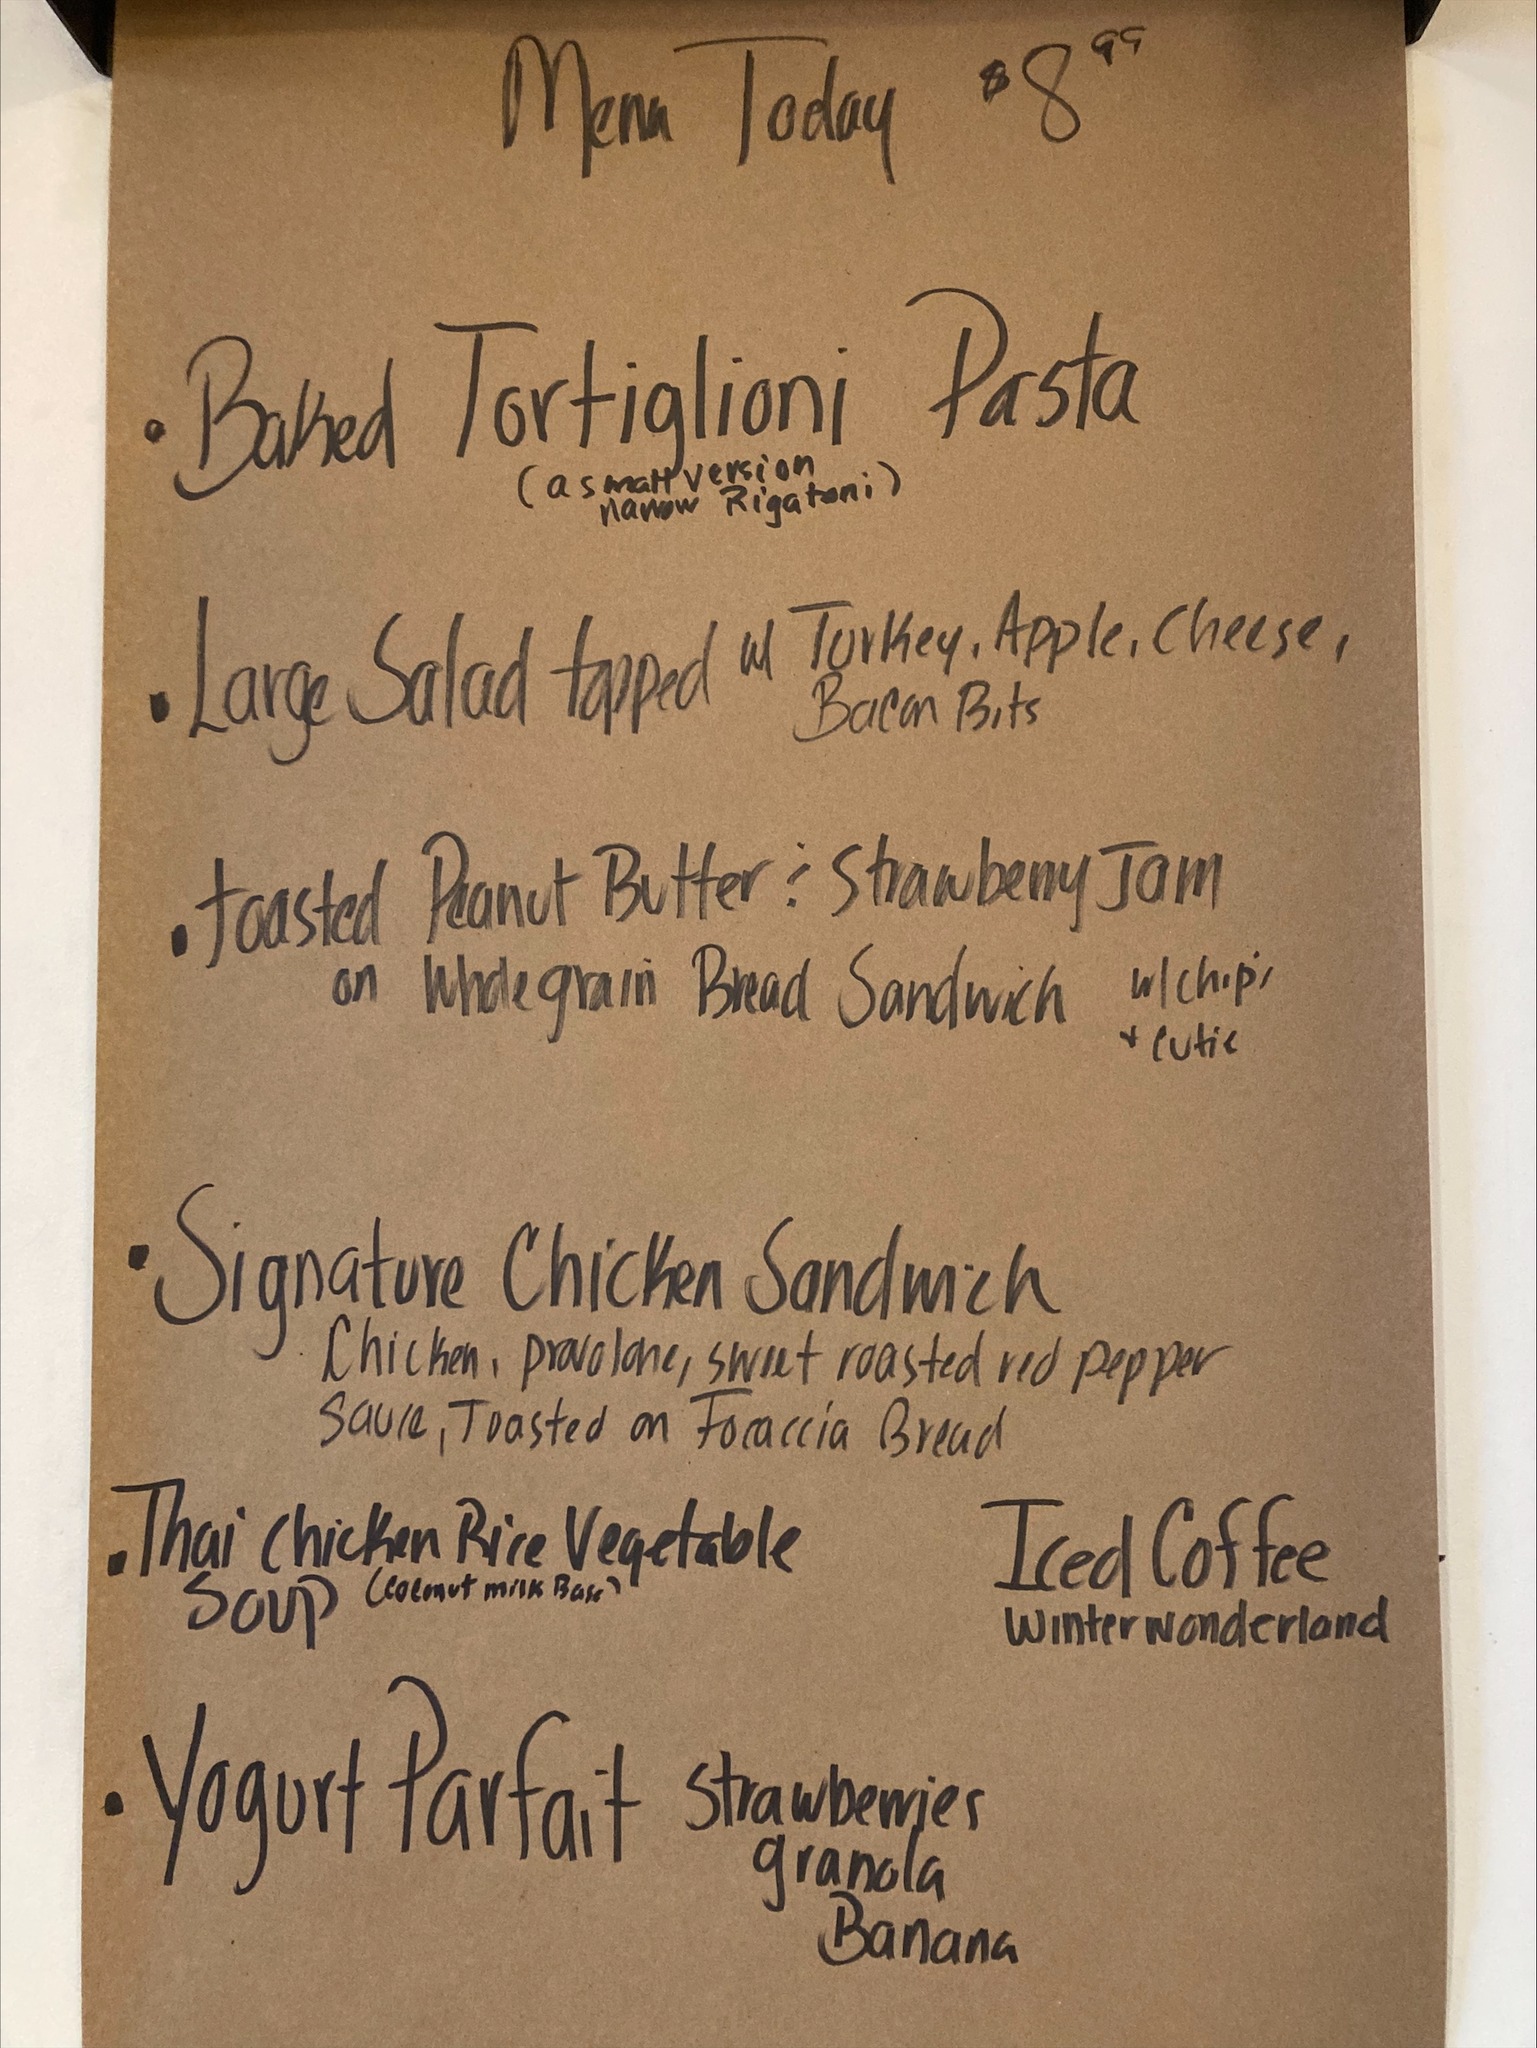 Menu Today $8.99
• Baked Tortiglioni Pasta
(a small version
narrow Rigatoni)
• Large Salad topped w/ Turkey, Apple, Cheese,
Bacon Bits
• toasted Peanut Butter & Strawberry Jam
on Whole grain Bread Sandwich w/ chips
+ cutie
• Signature Chicken Sandwich
Chicken, provolone, sweet roasted red pepper
sauce, Toasted on Focaccia Bread
• Thai Chicken Rice Vegetable
Soup (coconut milk Base)
Iced Coffee
Winter wonderland
• Yogurt Parfait strawberries
granola
Banana